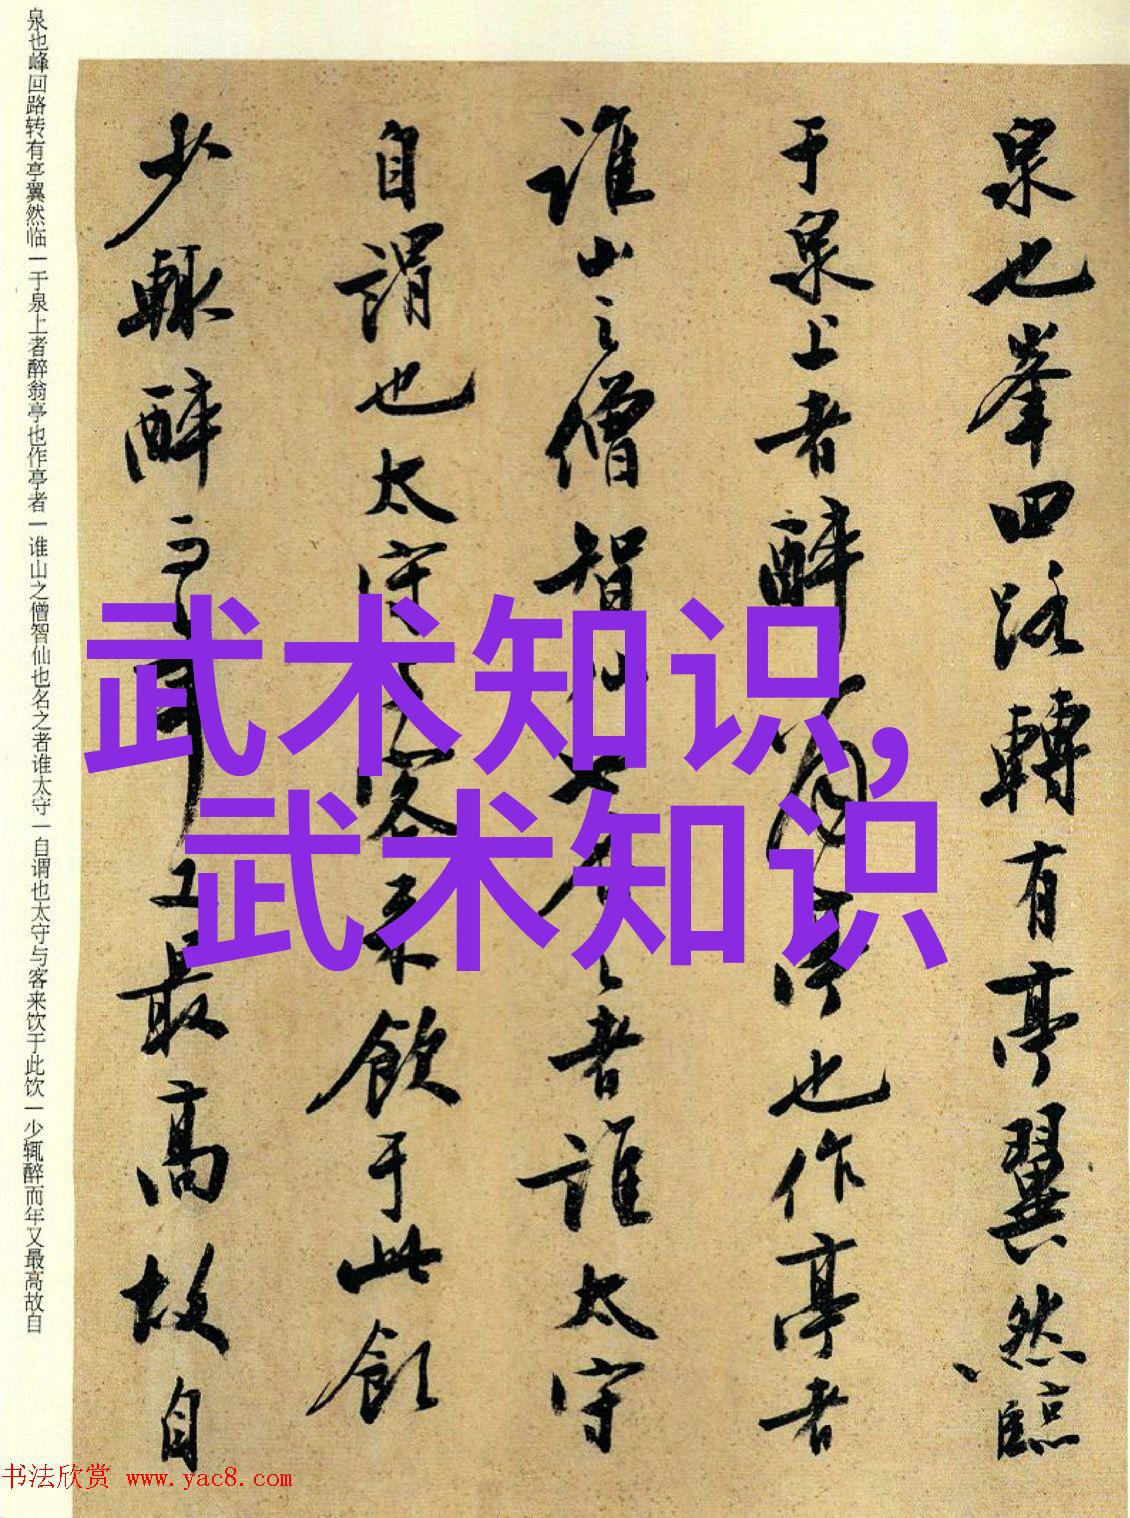 泉也峯回路轉有亭翼然臨
于泉上者醉翁亭也作亭者
誰山之僧智仙也名之者誰太守
自謂也太守与客来飲于此飲
少輒醉而年又最高故自
泉也峰回路转有亭翼然临一于泉上者醉翁亭也作亭者一谁山之僧智仙也名之者谁太守一自谓也太守与客来饮于此饮一少辄醉而年又最高故自
武术知识,
武术知识
书法欣赏 www.yac8.com